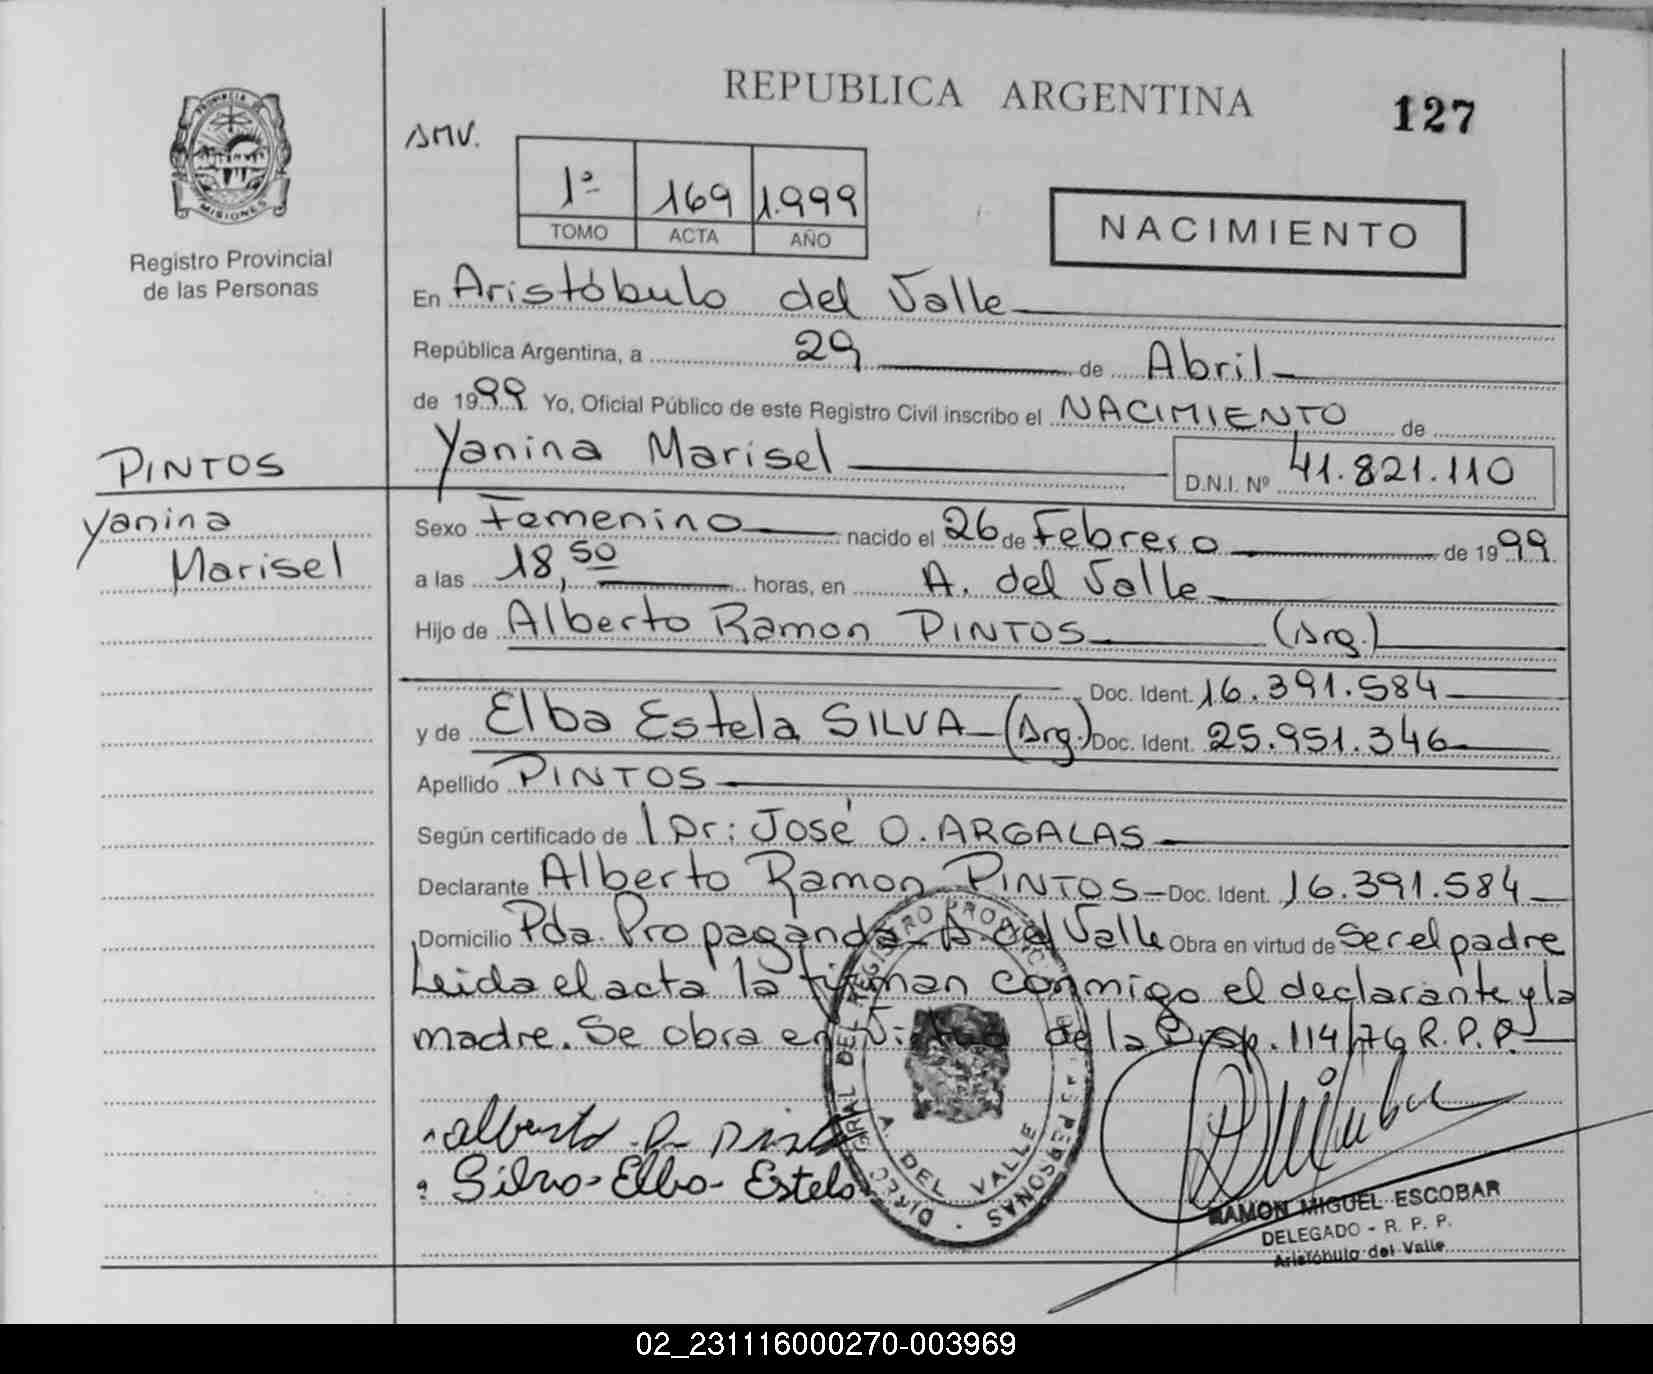 REPUBLICA ARGENTINA
127
PROVINCIA DE
MISIONES
Registro Provincial
de las Personas
SMV.
1ª 169 1.999
TOMO ACTA AÑO
NACIMIENTO
En Aristóbulo del Valle
República Argentina, a 29 de Abril
de 1999 Yo, Oficial Público de este Registro Civil inscribo el NACIMIENTO de
Yanina Marisel D.N.I. Nº 41.821.110
PINTOS
Yanina
Marisel
Sexo Femenino nacido el 26 de Febrero de 1999
a las 18,50 horas, en A. del Valle
Hijo de Alberto Ramon PINTOS (Arg.)
Doc. Ident. 16.391.584
y de Elba Estela SILVA (Arg.) Doc. Ident. 25.951.346
Apellido PINTOS
Según certificado de l Dr: José O. ARGALAS
Declarante Alberto Ramon PINTOS Doc. Ident. 16.391.584
Domicilio Pda. Propaganda - A. del Valle Obra en virtud de Ser el padre
Leida el acta la firman conmigo el declarante y la
madre. Se obra en Virtud de la Disp. 114/76 R.P.P.
Silva - Elba - Estela
A. DEL VALLE
RAMON MIGUEL ESCOBAR
DELEGADO - R. P. P.
Aristóbulo del Valle
02_231116000270-003969